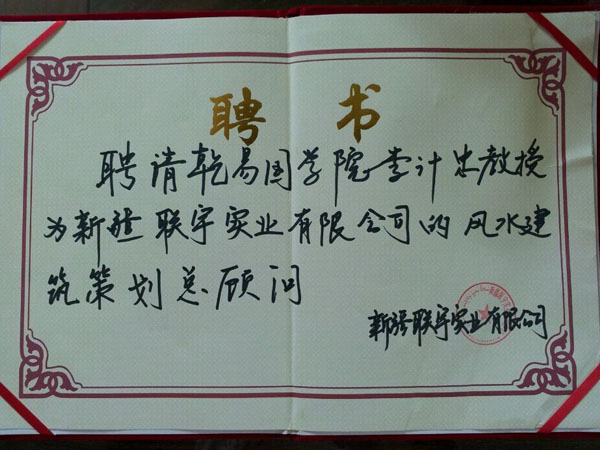 聘书
聘请乾易国学院李计忠教授
为新疆联宇实业有限公司的风水建
筑策划总顾问
新疆联宇实业有限公司